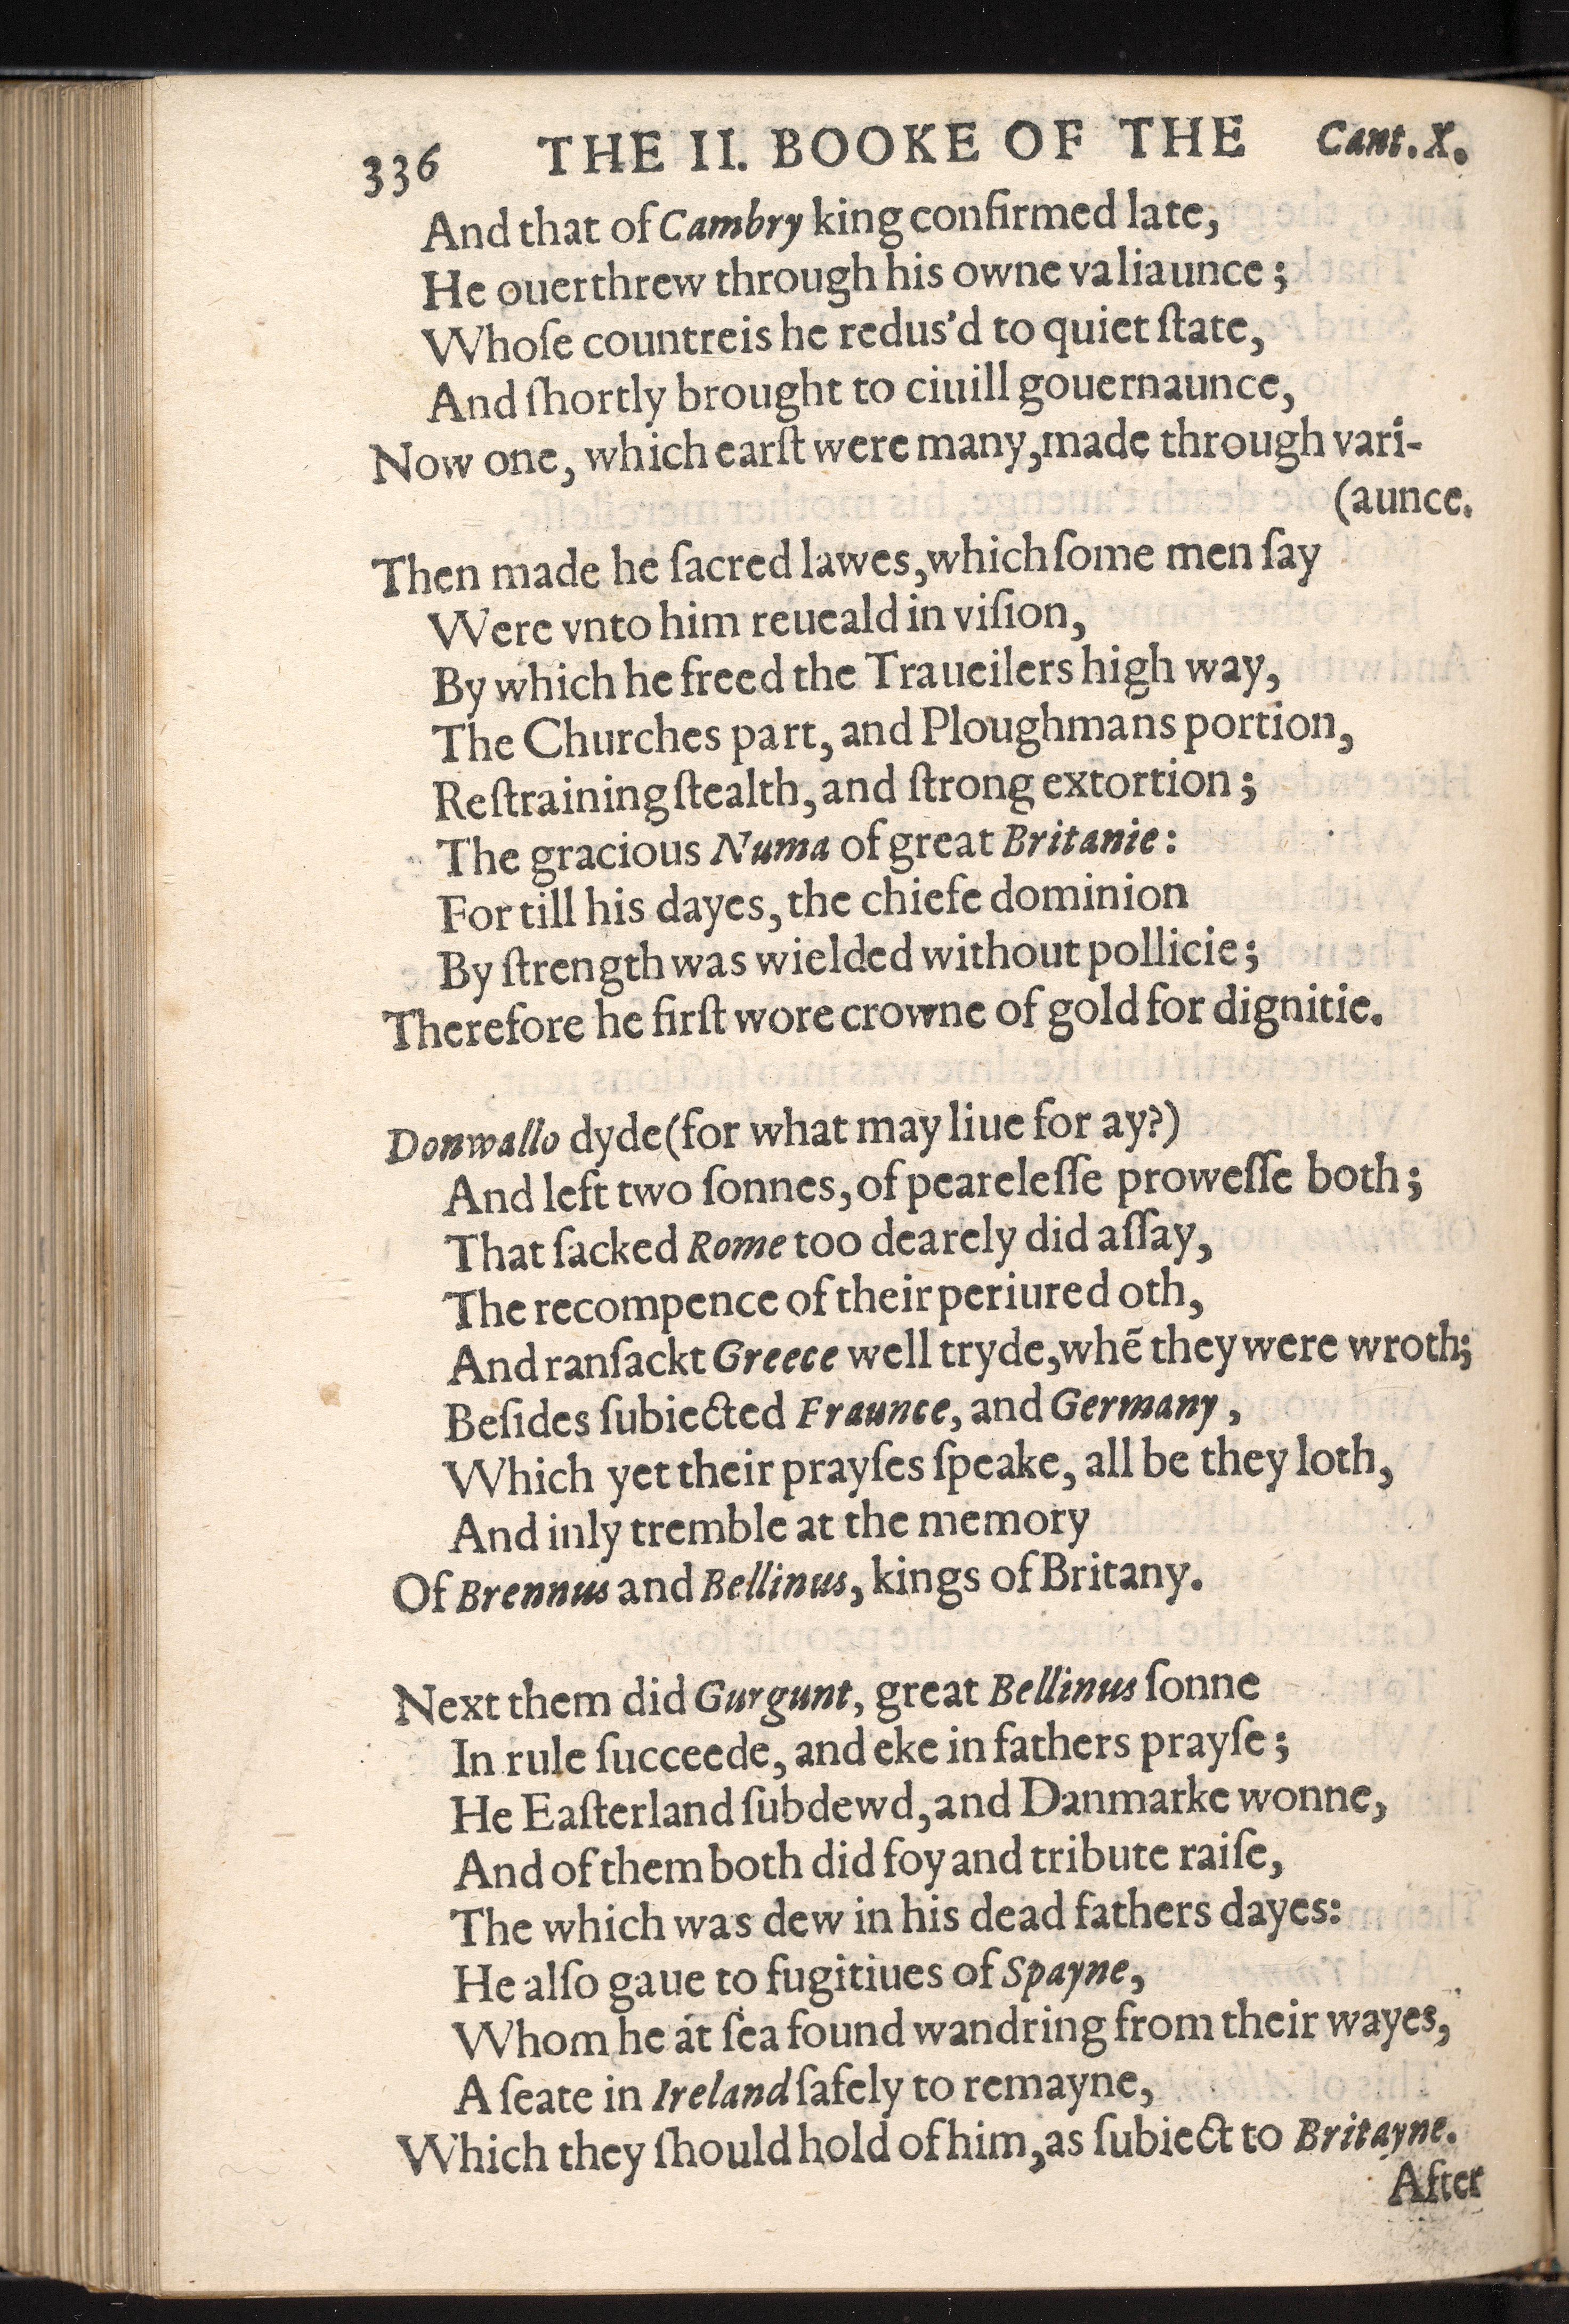 336 THE II. BOOKE OF THE Cant. X.
And that of Cambry king confirmed late,
He ouerthrew through his owne valiaunce;
Whoſe countreis he redus'd to quiet ſtate,
And ſhortly brought to ciuill gouernaunce,
Now one, which earſt were many, made through vari-
(aunce.
Then made he ſacred lawes, which ſome men ſay
Were vnto him reueald in viſion,
By which he freed the Traueilers high way,
The Churches part, and Ploughmans portion,
Reſtraining ſtealth, and ſtrong extortion;
The gracious Numa of great Britanie:
For till his dayes, the chiefe dominion
By ſtrength was wielded without pollicie;
Therefore he firſt wore crowne of gold for dignitie.
Donwallo dyde (for what may liue for ay?)
And left two ſonnes, of peareleſſe proweſſe both;
That ſacked Rome too dearely did aſſay,
The recompence of their periured oth,
And ranſackt Greece well tryde, whē they were wroth;
Beſides ſubiected Fraunce, and Germany,
Which yet their prayſes ſpeake, all be they loth,
And inly tremble at the memory
Of Brennus and Bellinus, kings of Britany.
Next them did Gurgunt, great Bellinus ſonne
In rule ſucceede, and eke in fathers prayſe;
He Eaſterland ſubdewd, and Danmarke wonne,
And of them both did foy and tribute raiſe,
The which was dew in his dead fathers dayes:
He alſo gaue to fugitiues of Spayne,
Whom he at ſea found wandring from their wayes,
A ſeate in Ireland ſafely to remayne,
Which they ſhould hold of him, as ſubiect to Britayne.
After